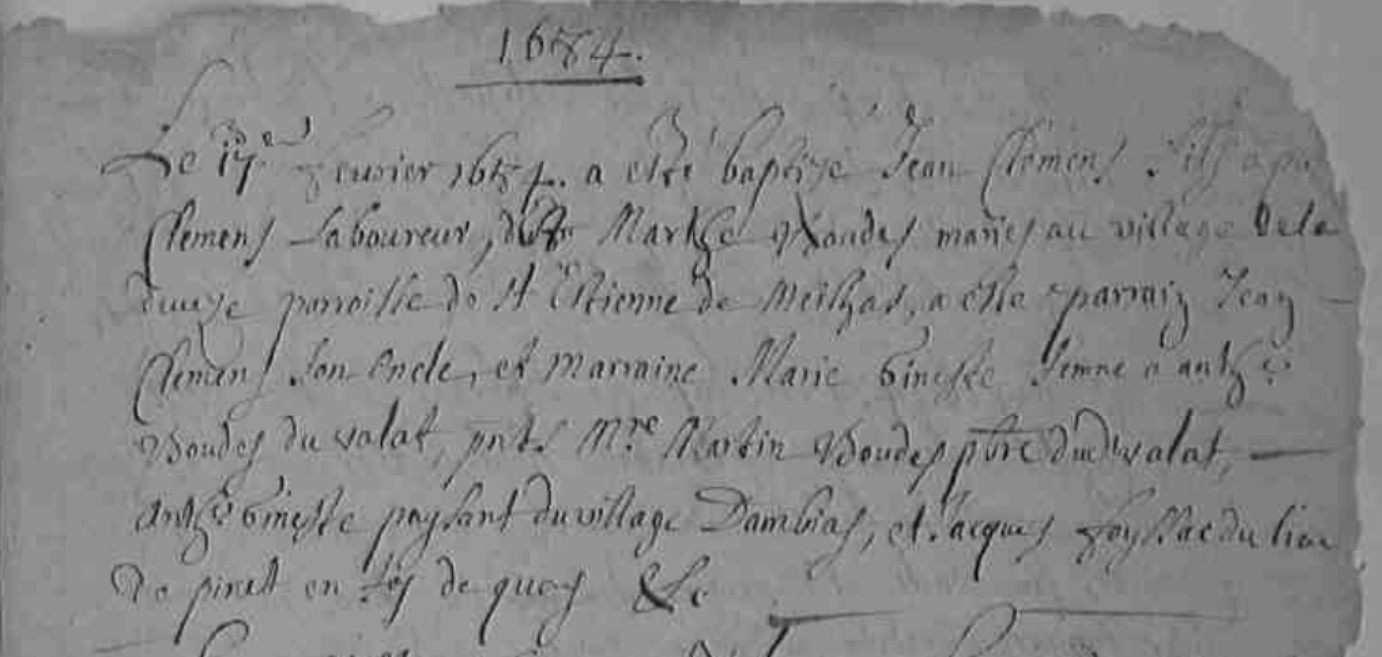 1684.
Le 17e feurier 1684. a esté baptizé Jean Clemens fils a
Clemens Laboureur, Marthe Boudes mariés au village dela
parroisse de St Estienne de Meilhas, a esté parrain Jean
Clemens son oncle, et marraine Marie Gineste femme a anthe
Boudes du valat, pnts Mre Martin Boudes ptre dud valat,
Anthe Gineste paysant du village Dambias, et Jacques foyssac du lieu
De pinet en foy de quoy &c